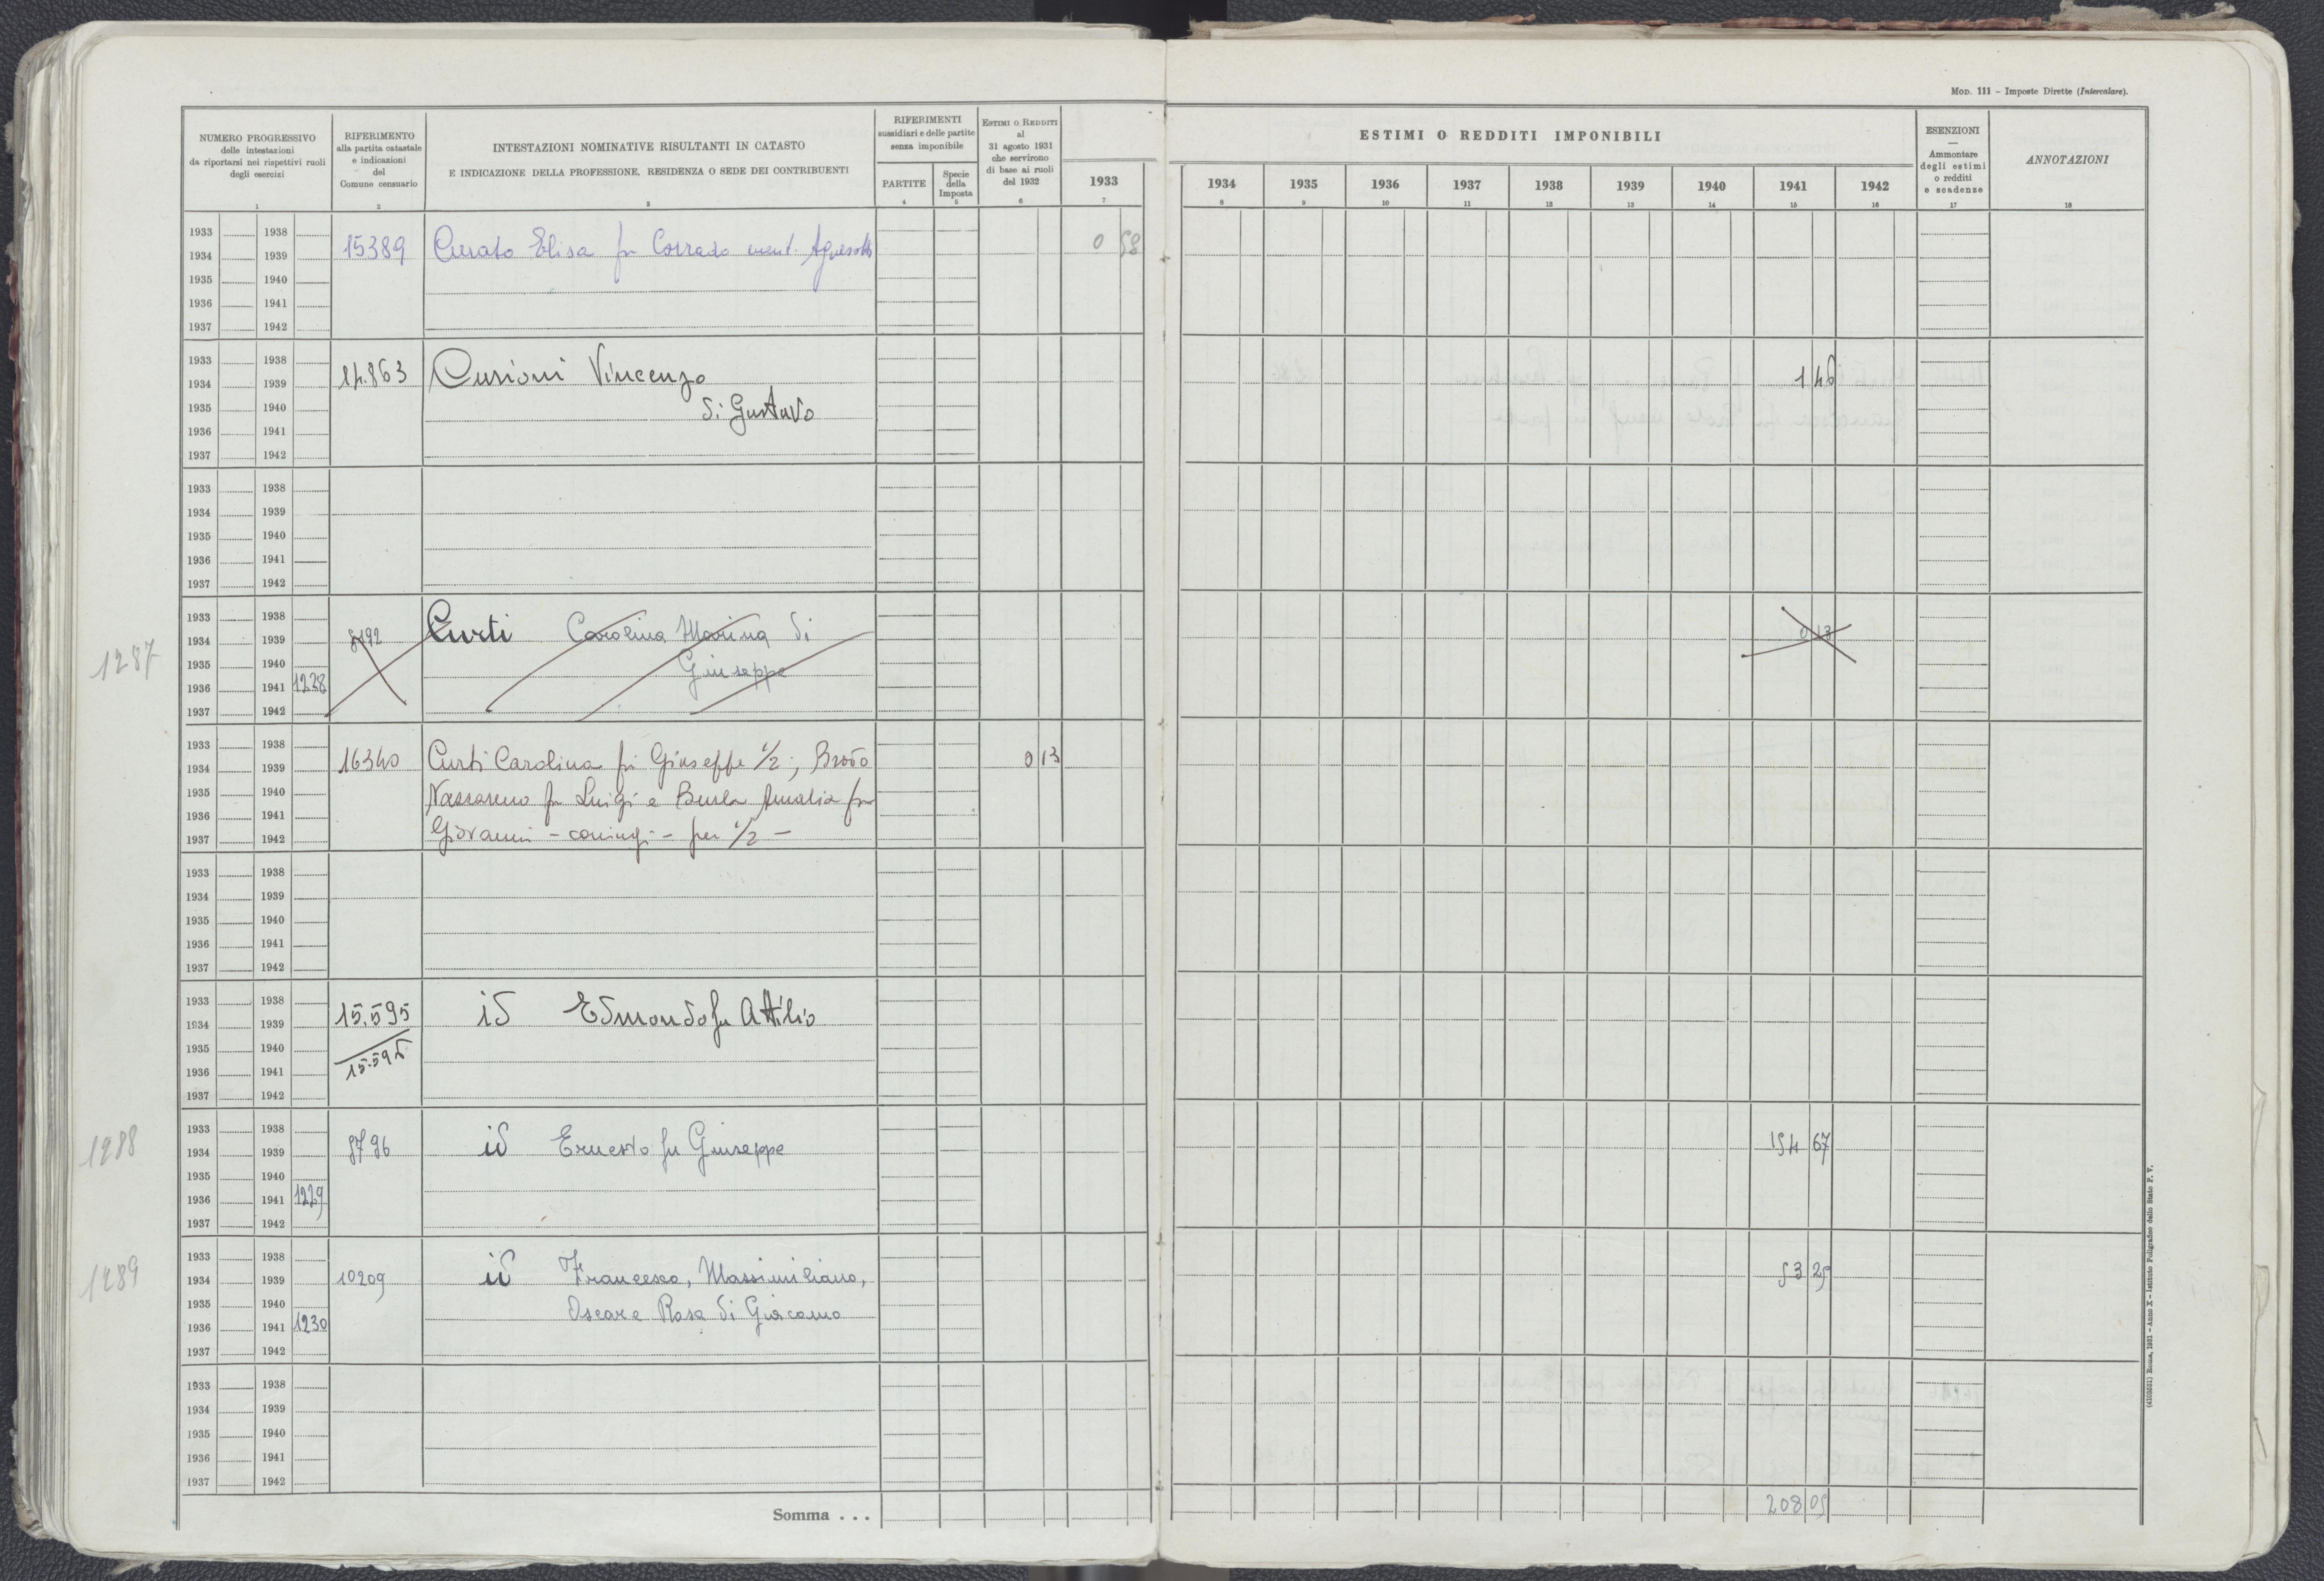 MOD. 111 – Imposte Dirette (Intercalare).
NUMERO PROGRESSIVO
delle intestazioni
da riportarsi nei rispettivi ruoli
degli esercizi
1
RIFERIMENTO
alla partita catastale
e indicazioni
del
Comune censuario
2
INTESTAZIONI NOMINATIVE RISULTANTI IN CATASTO
E INDICAZIONE DELLA PROFESSIONE, RESIDENZA O SEDE DEI CONTRIBUENTI
3
RIFERIMENTI
sussidiari e delle partite
senza imponibile
PARTITE
4
Specie
della
Imposta
5
ESTIMI O REDDITI
al
31 agosto 1931
che servirono
di base ai ruoli
del 1932
6
1933
7
ESTIMI O REDDITI IMPONIBILI
1934 1935 1936 1937 1938 1939 1940 1941 1942
8 9 10 11 12 13 14 15 16
ESENZIONI
—
Ammontare
degli estimi
o redditi
e scadenze
17
ANNOTAZIONI
18
1933 1938
1934 1939 15389 Curato Elisa fu Corrado 0 58
1935 1940
1936 1941
1937 1942
1933 1938
1934 1939 14.863 Curioni Vincenzo 1 46
1935 1940 di Gustavo
1936 1941
1937 1942
1933 1938
1934 1939
1935 1940
1936 1941
1937 1942
1933 1938
1934 1939 8192 Curti Carolina Marina di 0 13
1287
1935 1940 Giuseppe
1936 1941 1228
1937 1942
1933 1938
1934 1939 16340 Curti Carolina fu Giuseppe 1/2; 0 13
1935 1940 Nazzareno fu Luigi e Amalia fu
1936 1941
1937 1942 Giovanni – coniugi – per 1/2 –
1933 1938
1934 1939
1935 1940
1936 1941
1937 1942
1933 1938
1934 1939 15.595 id Edmondo fu Attilio
1935 1940
1936 1941 15.596
1937 1942
1933 1938
1288
1934 1939 8796 id Ernesto fu Giuseppe 154 67
1935 1940
1936 1941 1229
1937 1942
1933 1938
1289
1934 1939 10209 id Francesco, Massimiliano, 53 25
1935 1940 Oscar e Rosa di Giacomo
1936 1941 1230
1937 1942
1933 1938
1934 1939
1935 1940
1936 1941
1937 1942
Somma . . . 208 05
(4103031) Roma, 1931 – Anno X – Istituto Poligrafico dello Stato P. V.